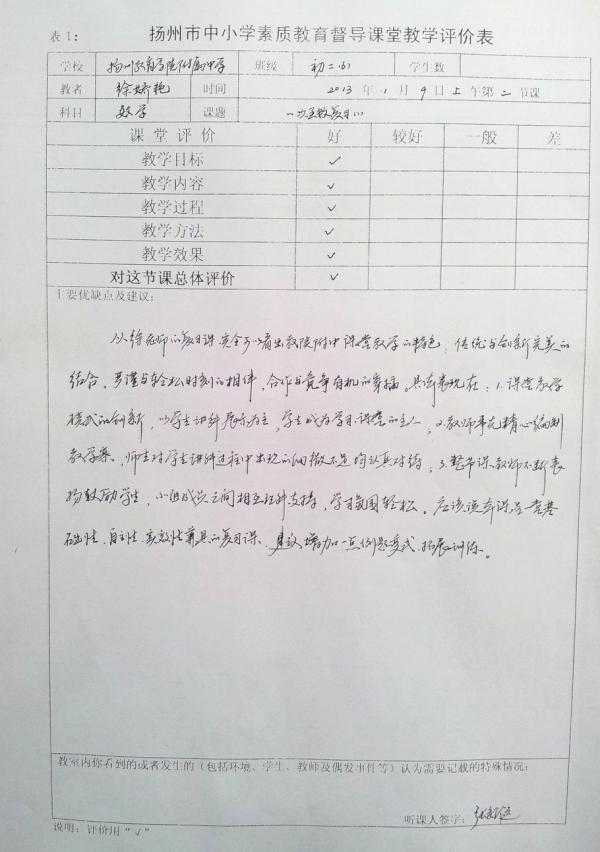 表1：
扬州市中小学素质教育督导课堂教学评价表
学校 扬州教育学院附属中学 班级 初二(6) 学生数
教者 徐娇艳 时间 2013年1月9日上午第二节课
科目 数学 课题 一次函数复习(1)
课堂评价 好 较好 一般 差
教学目标 ✓
教学内容 ✓
教学过程 ✓
教学方法 ✓
教学效果 ✓
对这节课总体评价 ✓
主要优缺点及建议：
从徐老师的复习课，完全可以看出教院附中课堂教学的特色：传统与创新完美的
结合，严谨与轻松时刻的相伴，合作与竞争有机的穿插。具体表现在：1.课堂教学
模式的创新，以学生讲解展示为主，学生成为学习课堂的主人；2.教师事先精心编制
教学案，师生对学生讲解过程中出现的细微不足均认真对待；3.整节课教师不断表
扬鼓励学生，小组成员之间相互补充支持，学习氛围轻松。应该说本课是一堂基
础性、自主性、实效性兼具的复习课。建议增加一点例题变式、拓展训练。
教室内你看到的或者发生的（包括环境、学生、教师及偶发事件等）认为需要记载的特殊情况：
听课人签字：
说明：评价用“√”